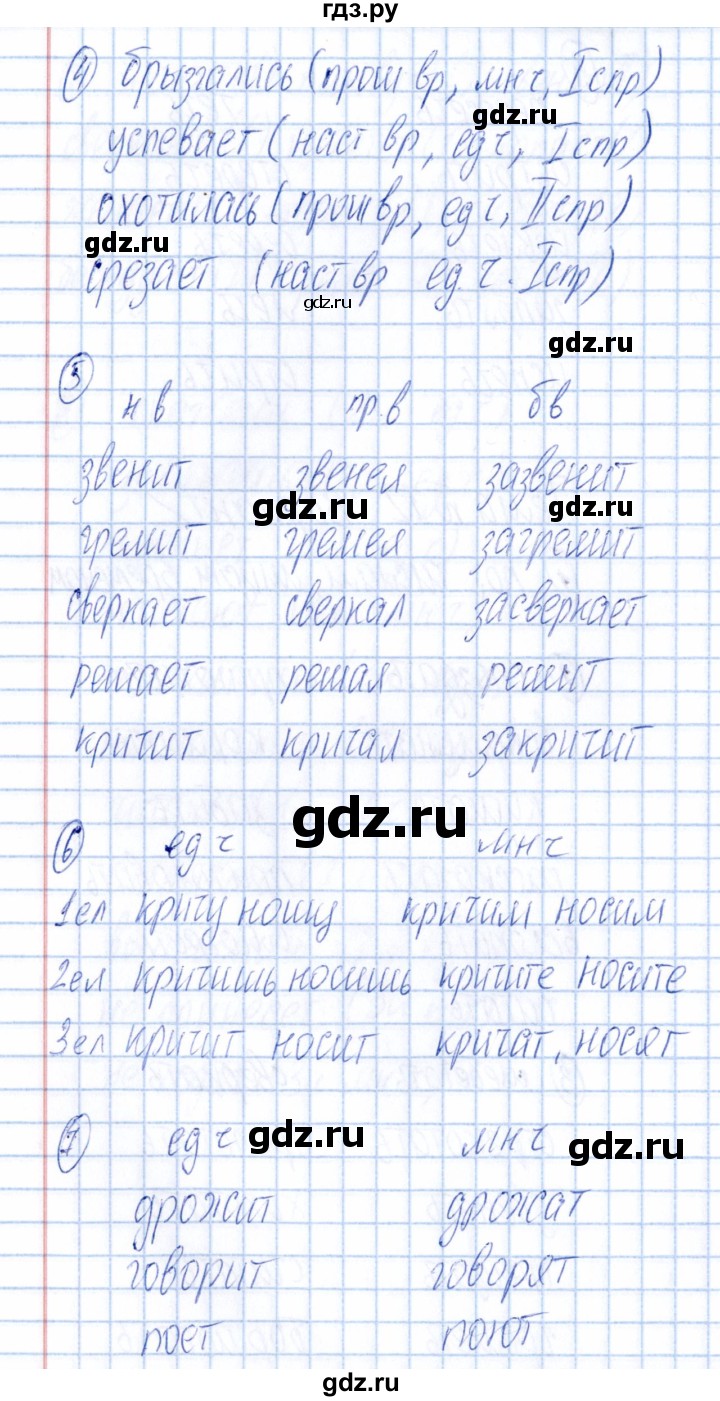 гдз.ру
4 брызгались (прош вр, мн ч, I спр)
gdz.ru
успевает (наст вр, ед ч, I спр)
охотилась (прош вр, ед ч, II спр)
gdz.ru
срезает (наст вр ед ч. I спр)
gdz.ru
gdz.ru
5
н в пр. в б в
звенит звенел зазвенит
gdz.ru gdz.ru
гремит гремел загремит
сверкает сверкал засверкает
решает решал решит
кричит кричал закричит
gdz.ru
6 ед ч мн ч
1 ел кричу ношу кричим носим
2 ел кричишь носишь кричите носите
3 ел кричит носит кричат, носят
7 ед ч gdz.ru мн ч gdz.ru
дрожит дрожат
говорит говорят
поет поют
gdz.ru